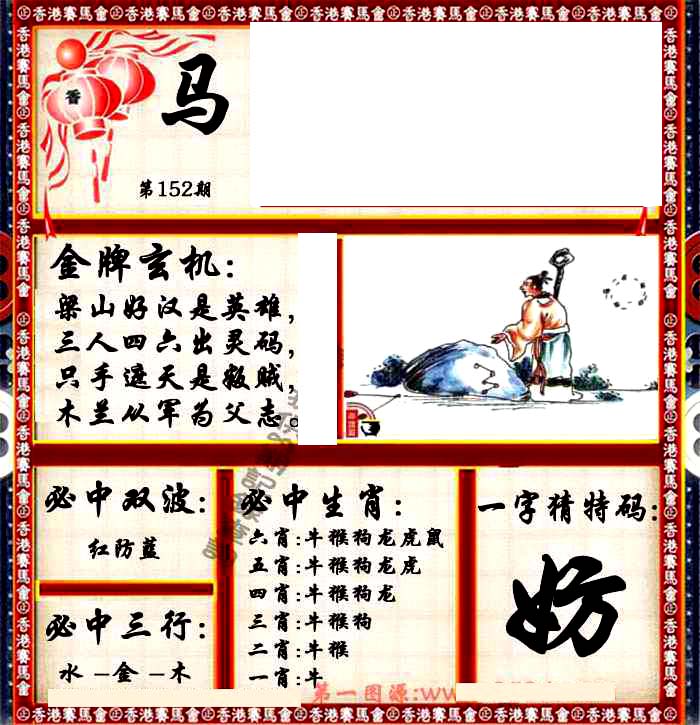 ㊣香港賽馬會㊣香港賽馬會㊣香港賽馬會㊣香港賽馬會㊣香港賽馬會㊣香港賽馬會㊣
香
马
第152期
金牌玄机:
梁山好汉是英雄，
三人四六出灵码，
只手遮天是叛贼，
木兰从军为父志。
必中双波:
红防蓝
必中三行:
水－金－木
必中生肖:
六肖:牛猴狗龙虎鼠
五肖:牛猴狗龙虎
四肖:牛猴狗龙
三肖:牛猴狗
二肖:牛猴
一肖:牛
一字猜特码:
妨
第一图源:ww
㊣香港賽馬會㊣香港賽馬會㊣香港賽馬會㊣香港賽馬會㊣香港賽馬會㊣香港賽馬會㊣